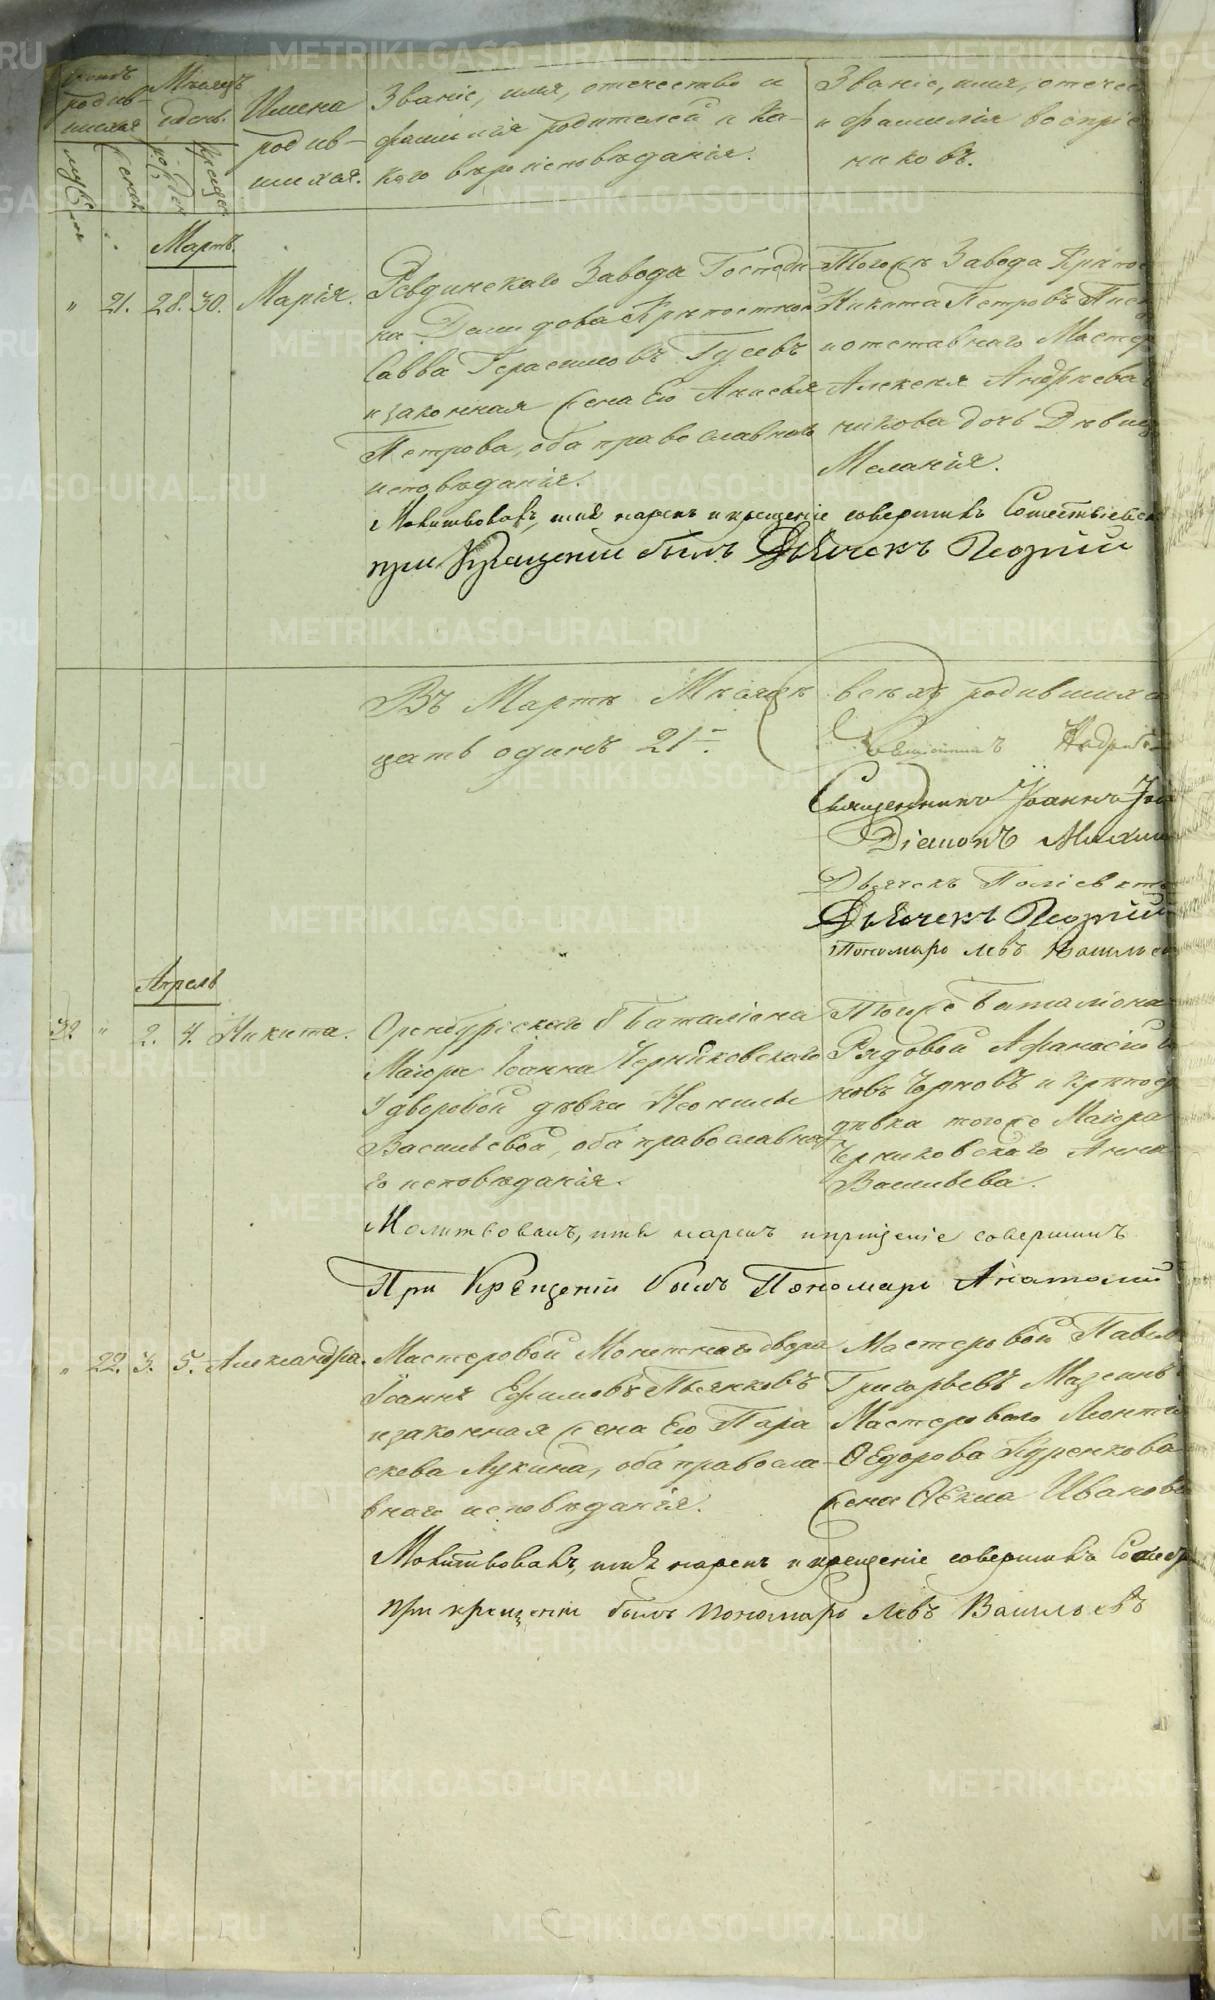 Имена родив-
шихся.
Званіе, имя, отечество и
фамилія родителей и ка-
кого вѣроисповѣданія.
Званіе, имя, отечес
и фамилія воспріе
никовъ.
Мартъ.
" 21. 28. 30. Марія.
Ревдинскаго Завода Господи
на Демидова Крѣпостной
Савва Герасимовъ Гусевъ
и законная жена Его
Петрова, оба православнаго
исповѣданія.
Тогожъ Завода Крѣпос
Никита Петровъ
и отставнаго Мастер
Алексѣя Андреева
никова дочь Дѣвица
Меланія.
Молитвовалъ, имя нарекъ и крещеніе совершилъ
при Крещеніи былъ Дьячекъ Георгій
Въ Мартѣ Мѣсяцѣ всѣхъ родившихся
цать одинъ 21.
Священникъ Іоаннъ
Діаконъ
Дьячекъ
Дьячекъ Георгій
Пономарь Левъ Василье
Апрель
32. " 2. 4. Никита.
Оренбургскаго 8 Баталіона
Маіора Іоанна Черниковскаго
дворовой дѣвки
Васильевой, оба православна
го исповѣданія.
Тогоже Баталіона
Рядовой Афанасій
новъ и Крѣпос
дѣвка тогоже Маіора
Черниковскаго Анна
Васильева.
Молитвовалъ, имя нарекъ и крещеніе совершилъ
При Крещеніи былъ Пономарь Анатолий
" 22. 3. 5. Александра.
Мастеровой Монетнаго двора
Іоаннъ Ефимовъ Пьянковъ
и законная жена Его Пара
скева Лукина, оба правосла-
внаго исповѣданія.
Мастеровой Павелъ
Григорьевъ
Мастероваго Леонтія
Ѳедорова Куренкова
жена Ѳекла Иванов
Молитвовалъ, имя нарекъ и крещеніе совершилъ
при крещеніи былъ пономарь Левъ Васильевъ
METRIKI.GASO-URAL.RU